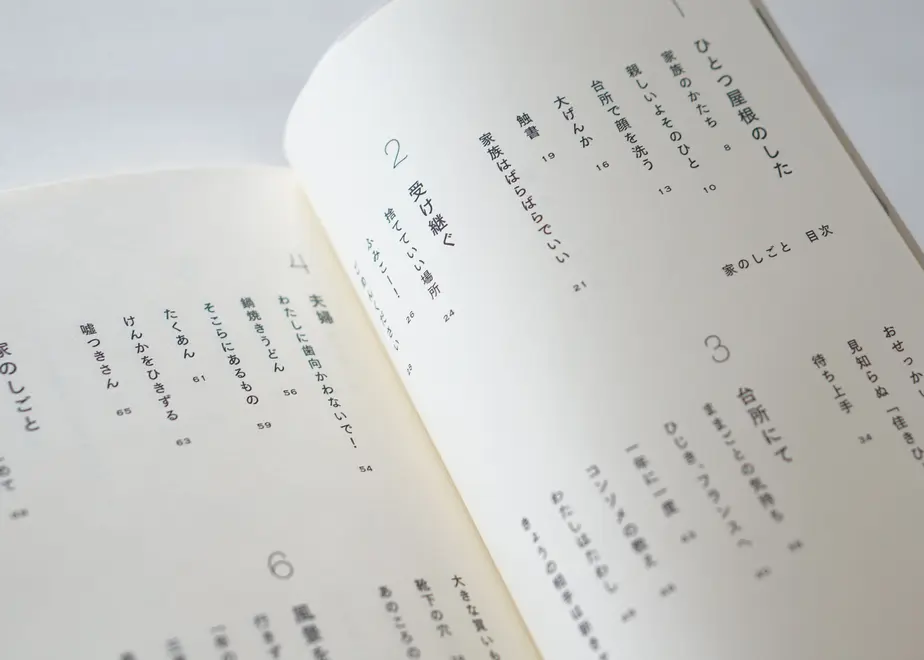 家のしごと 目次
ひとつ屋根のした
家族のかたち 8
親しいよそのひと 10
台所で顔を洗う 13
大げんか 16
触書 19
家族はばらばらでいい 21
2 受け継ぐ
捨てていい場所 24
ふみこー！ 26
おせっか
見知らぬ「佳きひ
待ち上手 34
3 台所にて
ままごとの気持ち
ひじき、フランスへ
一年に一度
コンソメの教え
わたしはたわし
きょうの相手は
4 夫婦
わたしに歯向かわないで！ 54
鍋焼きうどん 56
そこらにあるもの 59
たくあん 61
けんかをひきずる 63
嘘つきさん 65
家のしごと
68
大きな買いも
靴下の穴
あのころの
6 風景を
行きず